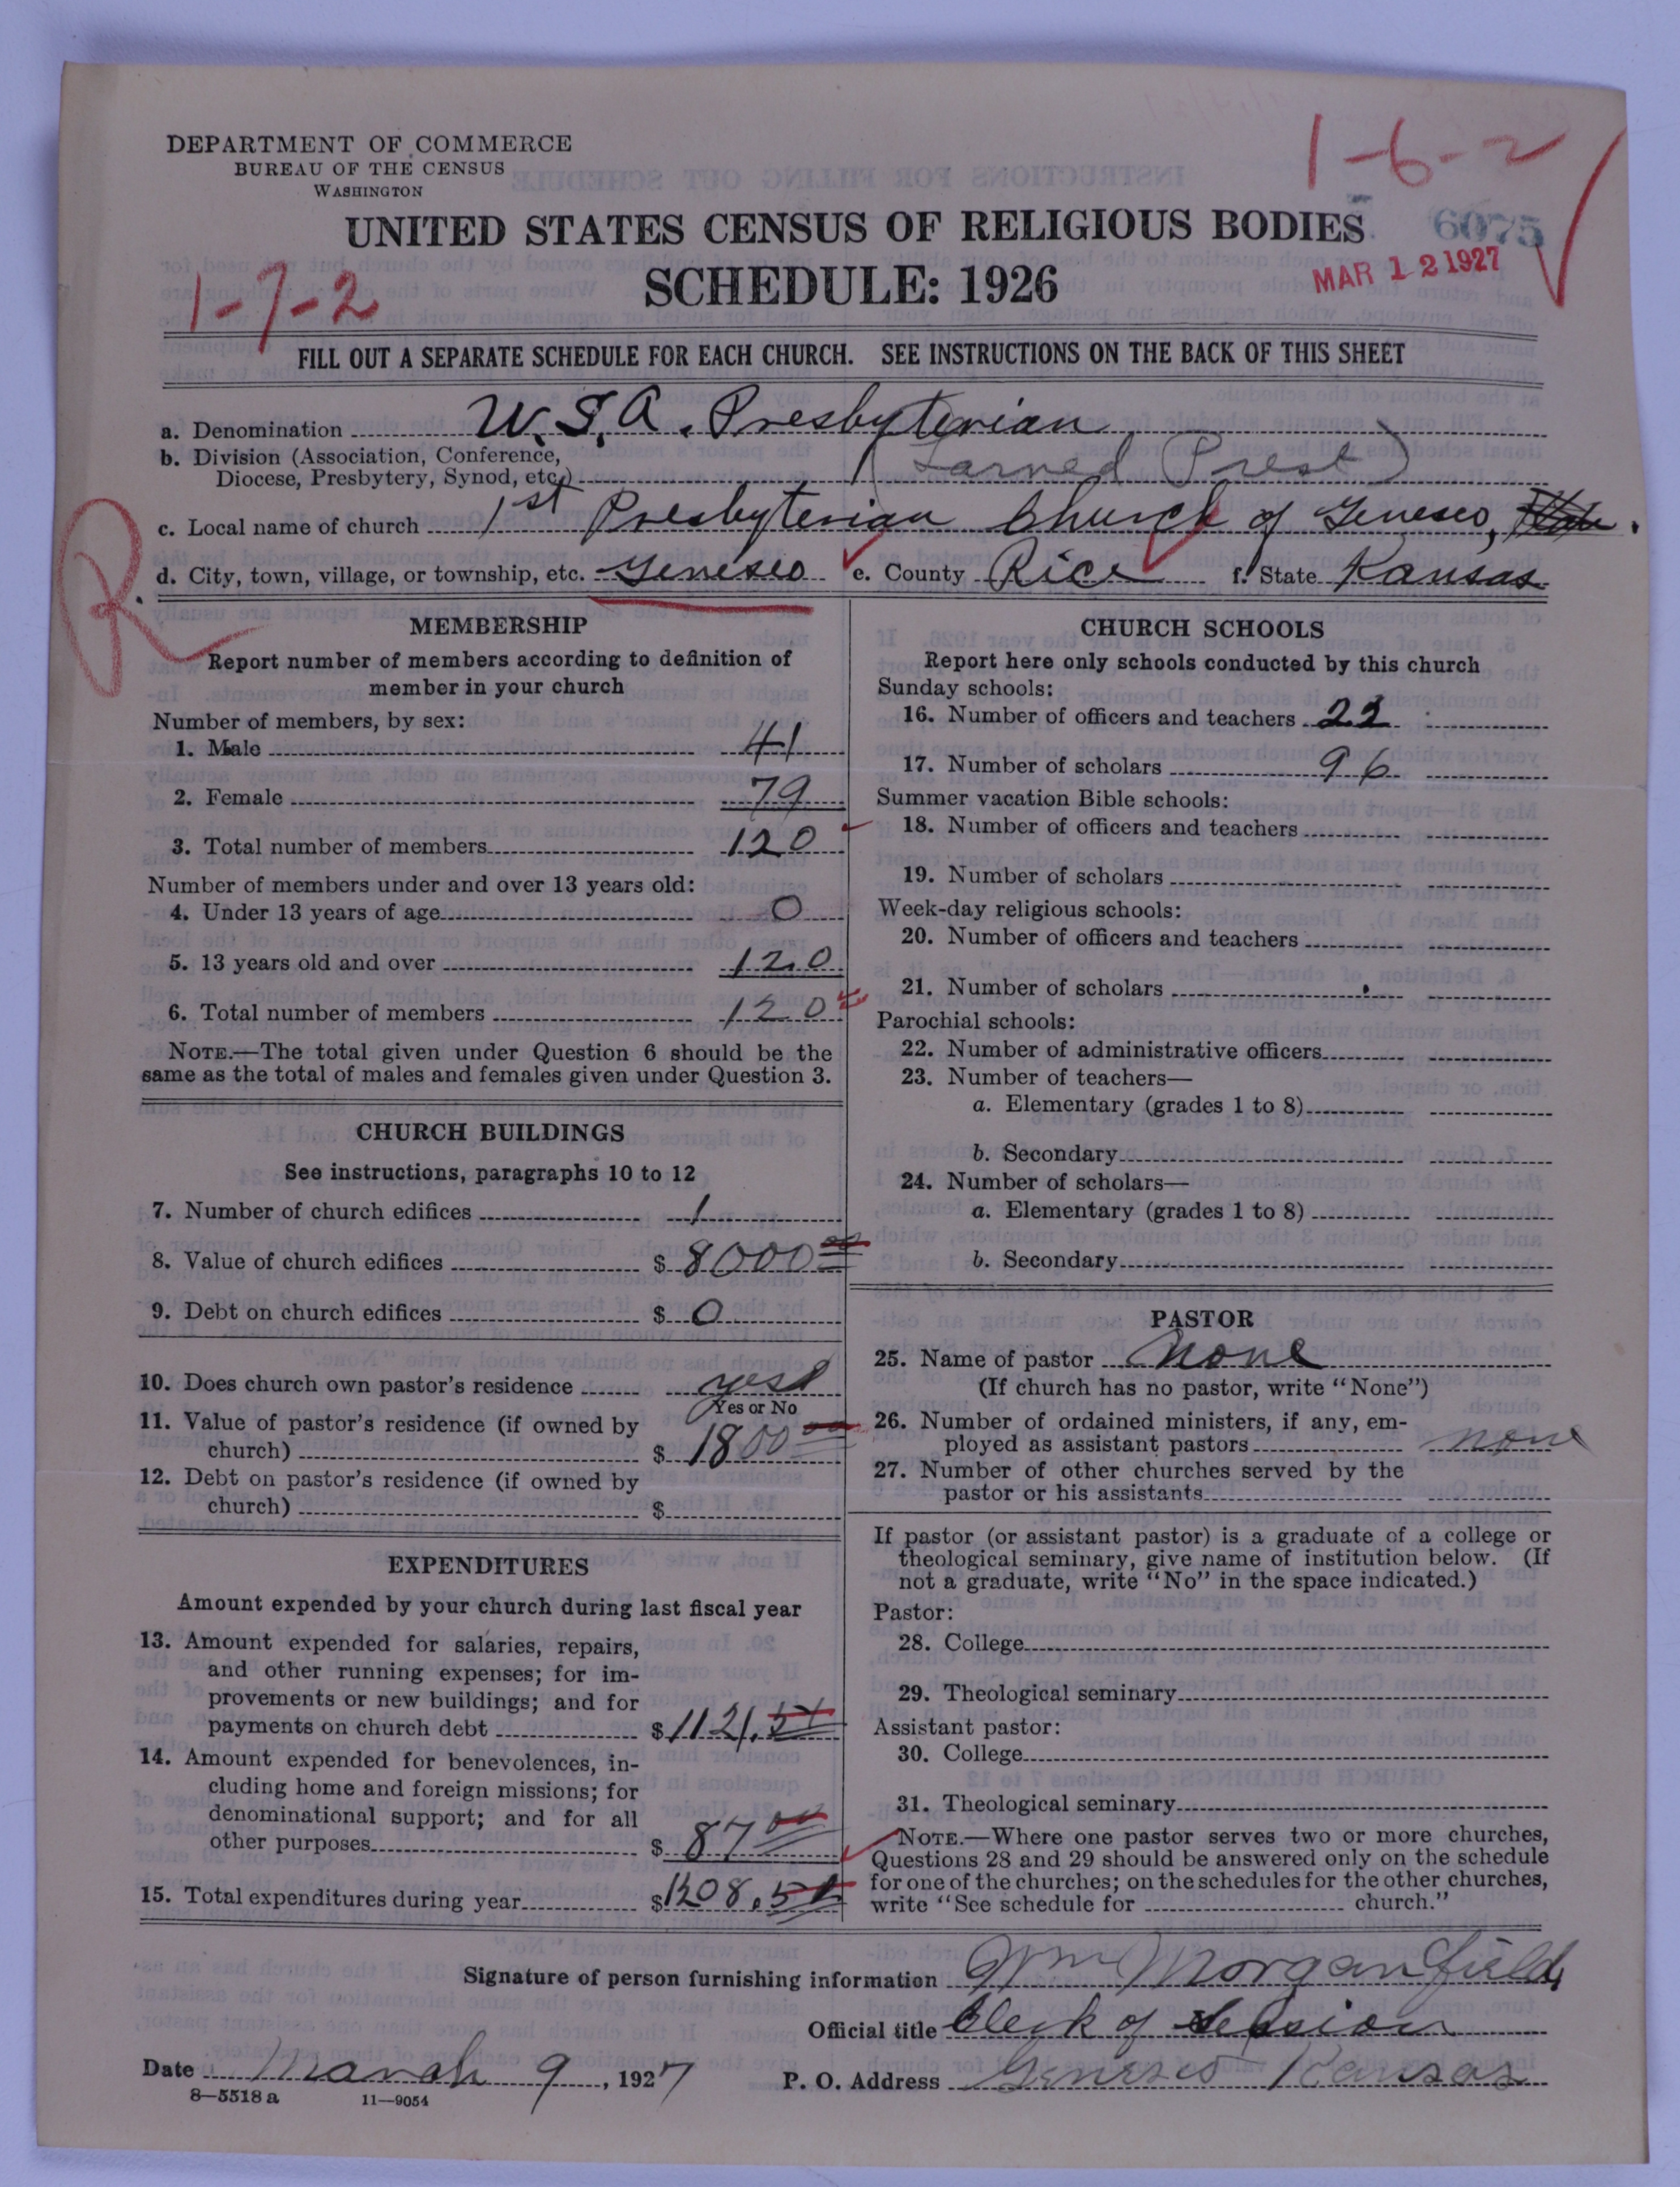 DEPARTMENT OF COMMERCE
BUREAU OF THE CENSUS
WASHINGTON
1-6-2
UNITED STATES CENSUS OF RELIGIOUS BODIES
6075
SCHEDULE: 1926
MAR 12 1927
1-7-2
FILL OUT A SEPARATE SCHEDULE FOR EACH CHURCH. SEE INSTRUCTIONS ON THE BACK OF THIS SHEET
a. Denomination U.S.A. Presbyterian
b. Division (Association, Conference,
Diocese, Presbytery, Synod, etc.) (Larned Prest)
c. Local name of church 1st Presbyterian Church of Geneseo,
d. City, town, village, or township, etc. Geneseo e. County Rice f. State Kansas
R
MEMBERSHIP
Report number of members according to definition of
member in your church
Number of members, by sex:
1. Male 41
2. Female 79
3. Total number of members 120
Number of members under and over 13 years old:
4. Under 13 years of age 0
5. 13 years old and over 120
6. Total number of members 120
NOTE.—The total given under Question 6 should be the
same as the total of males and females given under Question 3.
CHURCH BUILDINGS
See instructions, paragraphs 10 to 12
7. Number of church edifices 1
8. Value of church edifices $ 8000 00
9. Debt on church edifices $ 0
10. Does church own pastor's residence yes
Yes or No
11. Value of pastor's residence (if owned by
church) $ 1800 00
12. Debt on pastor's residence (if owned by
church) $
EXPENDITURES
Amount expended by your church during last fiscal year
13. Amount expended for salaries, repairs,
and other running expenses; for im-
provements or new buildings; and for
payments on church debt $ 1121.54
14. Amount expended for benevolences, in-
cluding home and foreign missions; for
denominational support; and for all
other purposes $ 87 00
15. Total expenditures during year $ 1208.54
CHURCH SCHOOLS
Report here only schools conducted by this church
Sunday schools:
16. Number of officers and teachers
17. Number of scholars 96
Summer vacation Bible schools:
18. Number of officers and teachers
19. Number of scholars
Week-day religious schools:
20. Number of officers and teachers
21. Number of scholars
Parochial schools:
22. Number of administrative officers
23. Number of teachers—
a. Elementary (grades 1 to 8)
b. Secondary
24. Number of scholars—
a. Elementary (grades 1 to 8)
b. Secondary
PASTOR
25. Name of pastor None
(If church has no pastor, write "None")
26. Number of ordained ministers, if any, em-
ployed as assistant pastors none
27. Number of other churches served by the
pastor or his assistants
If pastor (or assistant pastor) is a graduate of a college or
theological seminary, give name of institution below. (If
not a graduate, write "No" in the space indicated.)
Pastor:
28. College
29. Theological seminary
Assistant pastor:
30. College
31. Theological seminary
NOTE.—Where one pastor serves two or more churches,
Questions 28 and 29 should be answered only on the schedule
for one of the churches; on the schedules for the other churches,
write "See schedule for church."
Signature of person furnishing information Wm Morganfield,
Official title Clerk of Session
Date March 9, 1927 P. O. Address Geneseo Kansas
8—5518 a 11—9054